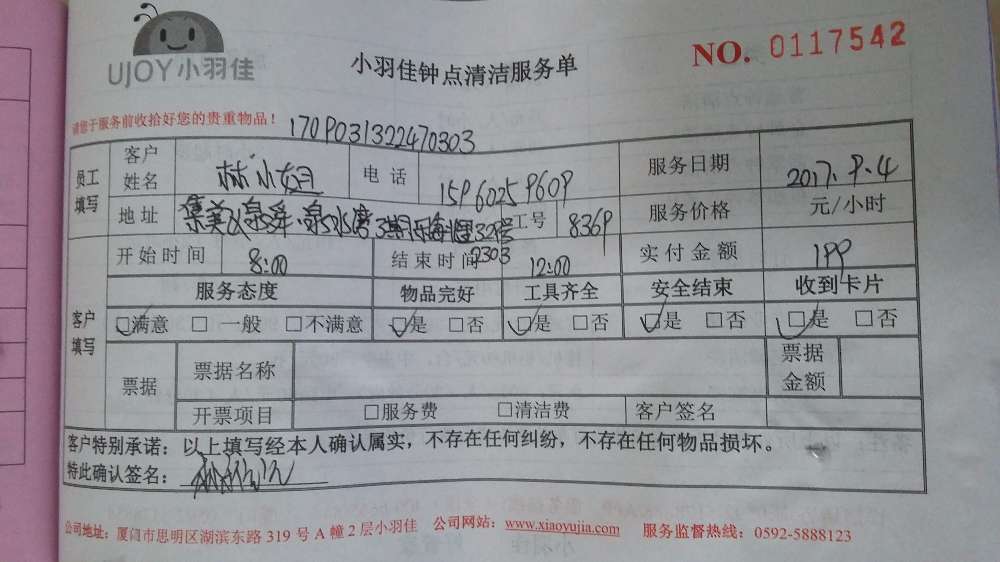 UJOY小羽佳
小羽佳钟点清洁服务单
NO. 0117542
请您于服务前收拾好您的贵重物品！
170P031322470303
员工填写
客户姓名 林小姐 电话 15P6025P60P 服务日期 2017.P.4
地址 集美区 工号 836P 服务价格 元/小时
2303
开始时间 8:00 结束时间 12:00 实付金额 1PP
客户填写
服务态度 物品完好 工具齐全 安全结束 收到卡片
☑满意 □一般 □不满意 ☑是 □否 ☑是 □否 ☑是 □否 ☑是 □否
票据 票据名称 票据金额
开票项目 □服务费 □清洁费 客户签名
客户特别承诺：以上填写经本人确认属实，不存在任何纠纷，不存在任何物品损坏。
特此确认签名：
公司地址：厦门市思明区湖滨东路 319 号 A 幢 2 层小羽佳 公司网站：www.xiaoyujia.com 服务监督热线：0592-5888123